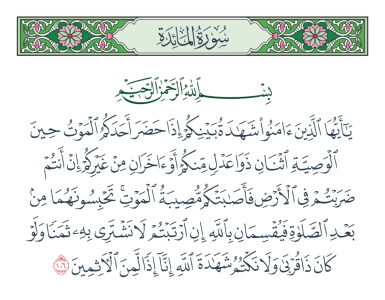 سُورَةُ المَائِدَةِ
بِسْمِ ٱللَّهِ ٱلرَّحْمَٰنِ ٱلرَّحِيمِ
يَٰٓأَيُّهَا ٱلَّذِينَ ءَامَنُوا۟ شَهَٰدَةُ بَيْنِكُمْ إِذَا حَضَرَ أَحَدَكُمُ ٱلْمَوْتُ حِينَ
ٱلْوَصِيَّةِ ٱثْنَانِ ذَوَا عَدْلٍ مِّنكُمْ أَوْ ءَاخَرَانِ مِنْ غَيْرِكُمْ إِنْ أَنتُمْ
ضَرَبْتُمْ فِى ٱلْأَرْضِ فَأَصَٰبَتْكُم مُّصِيبَةُ ٱلْمَوْتِ ۚ تَحْبِسُونَهُمَا مِنۢ
بَعْدِ ٱلصَّلَوٰةِ فَيُقْسِمَانِ بِٱللَّهِ إِنِ ٱرْتَبْتُمْ لَا نَشْتَرِى بِهِۦ ثَمَنًا وَلَوْ
كَانَ ذَا قُرْبَىٰ ۙ وَلَا نَكْتُمُ شَهَٰدَةَ ٱللَّهِ إِنَّآ إِذًا لَّمِنَ ٱلْءَاثِمِينَ ١٠٦